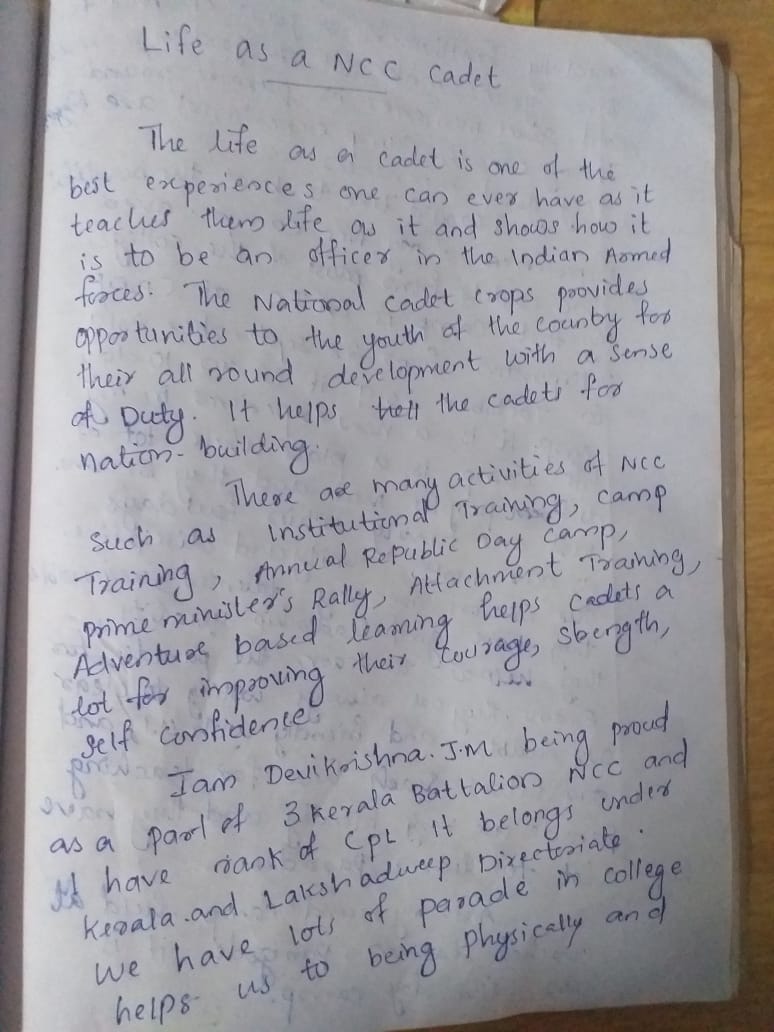 Life as a NCC Cadet
The life as a cadet is one of the
best experiences one can ever have as it
teaches them life as it and shows how it
is to be an officer in the Indian Armed
forces. The National Cadet Crops provides
opportunities to the youth of the country for
their all round development with a sense
of Duty. It helps the cadets for
nation-building.
There are many activities of NCC
such as Institutional Training, Camp
Training, Annual Republic Day Camp,
prime minister's Rally, Attachment Training,
Adventure based learning helps cadets a
lot for improving their courage, strength,
self confidence.
Iam Devikrishna.J.M being proud
as a part of 3 Kerala Battalion NCC and
I have rank of CPL It belongs under
Kerala and Lakshadweep Directoriate.
We have lots of parade in college
helps us to being physically and